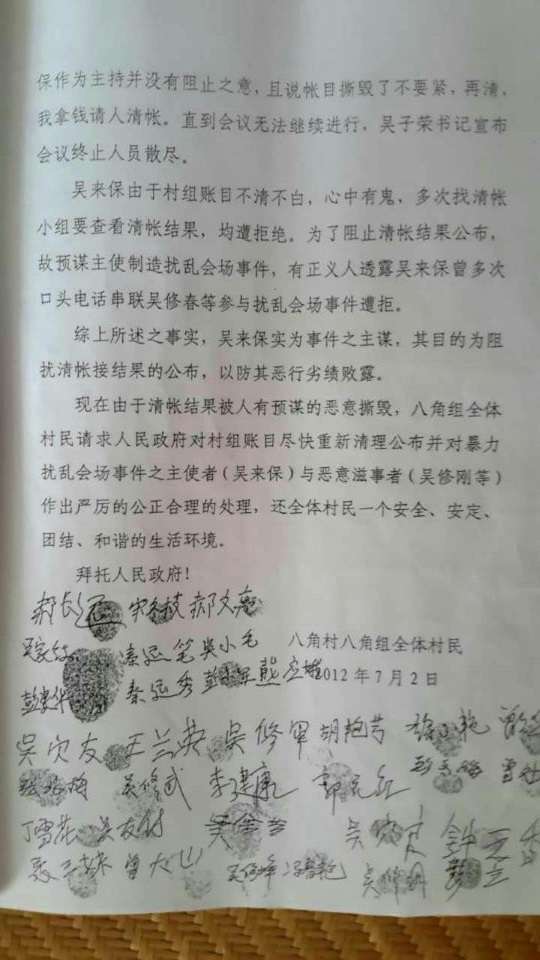 保作为主持并没有阻止之意，且说帐目撕毁了不要紧，再清，
我拿钱请人清帐。直到会议无法继续进行，吴子荣书记宣布
会议终止人员散尽。
吴来保由于村组账目不清不白，心中有鬼，多次找清帐
小组要查看清帐结果，均遭拒绝。为了阻止清帐结果公布，
故预谋主使制造扰乱会场事件，有正义人透露吴来保曾多次
口头电话串联吴修春等参与扰乱会场事件遭拒。
综上所述之事实，吴来保实为事件之主谋，其目的为阻
扰清帐接结果的公布，以防其恶行劣绩败露。
现在由于清帐结果被人有预谋的恶意撕毁，八角组全体
村民请求人民政府对村组账目尽快重新清理公布并对暴力
扰乱会场事件之主使者（吴来保）与恶意滋事者（吴修刚等）
作出严厉的公正合理的处理，还全体村民一个安全、安定、
团结、和谐的生活环境。
拜托人民政府！
八角村八角组全体村民
秦远笔 吴小毛
秦远秀
2012年7月2日
吴穴友 王兰英 吴修军 胡艳芳
吴修武 李建康
丁雪花 吴友材
曾大山